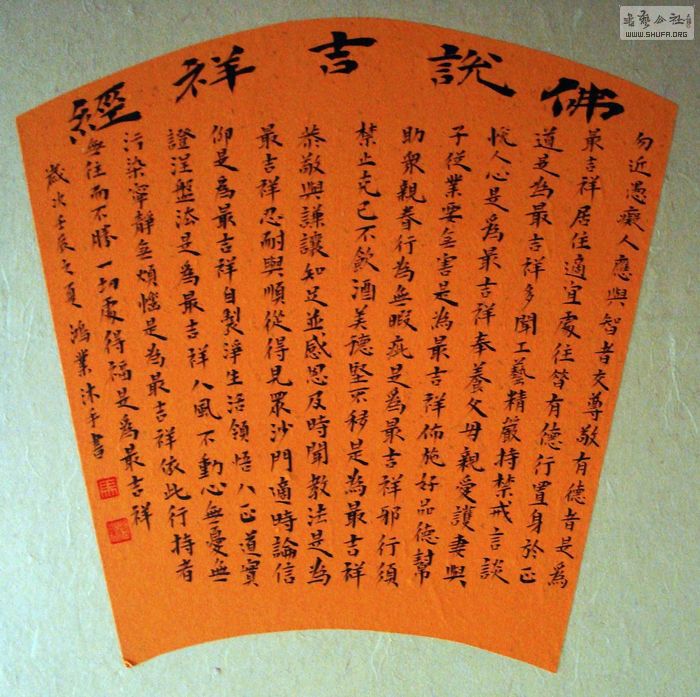 佛說吉祥經
勿近愚癡人應與智者交尊敬有德者是為
最吉祥居住適宜處往昔有德行置身於正
道是為最吉祥多聞工藝精嚴持禁戒言談
悅人心是為最吉祥奉養父母親愛護妻與
子從業要無害是為最吉祥佈施好品德幫
助眾親眷行為無瑕疵是為最吉祥邪行須
禁止克己不飲酒美德堅不移是為最吉祥
恭敬與謙讓知足並感恩及時聞教法是為
最吉祥忍耐與順從得見眾沙門適時論信
仰是為最吉祥自製淨生活領悟八正道實
證涅盤法是為最吉祥八風不動心無憂無
污染寧靜無煩惱是為最吉祥依此行持者
無往而不勝一切處得福是為最吉祥
歲次壬辰之夏 鴻業沐手書
書藝公社
WWW.SHUFA.ORG